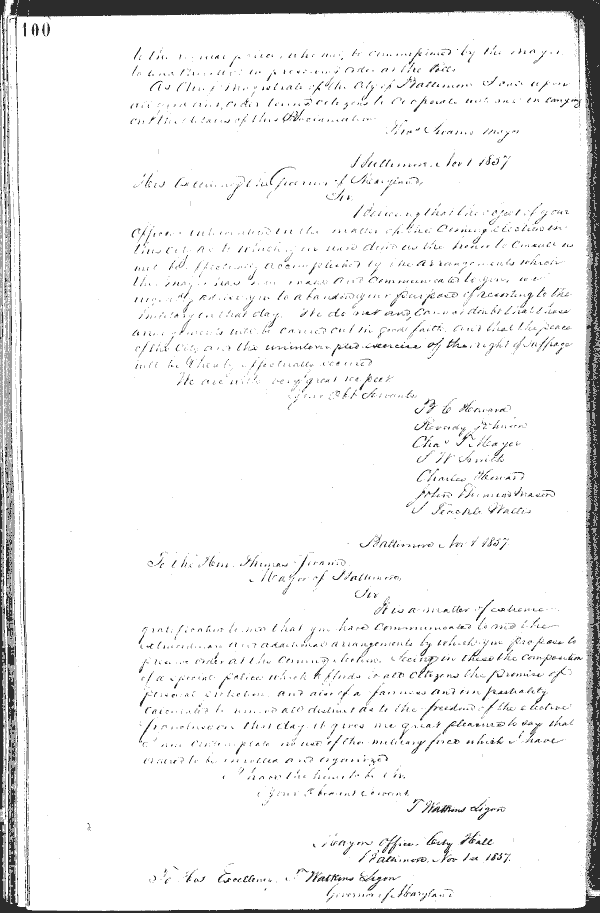 100
to the regular police, who may be commissioned by the mayor
to and in preserving order at the Polls
As Chief magistrate of the City of Baltimore I call upon
all good and order loving citizens to cooperate with me in carrying
out the objects of this Proclamation
Thos Swann Mayor
Baltimore Nov 1 1857
His Excellency the Governor of Maryland,
Sir,
Believing that the object of your
Official intervention in the matter of the Coming election in
this City as to which you have done us the honor to Consult us
will be effectually accomplished by the arrangements which
the mayor has now made and communicated to you, we
advise you to abandon your purpose of resorting to the
military on that day. We do not and cannot doubt that these
arrangements will be carried out in good faith and that the peace
of the City and the uninterrupted exercise of the right of Suffrage
will be thereby effectually secured
We are with very great respect
Your Obt Servants
B C Howard
Reverdy Johnson
Chas F Mayer
S W Smith
Charles Howard
John Thomas Mason
S Teackle Wallis
Baltimore Nov 1 1857
To the Hon. Thomas Swann
Mayor of Baltimore,
Sir
It is a matter of extreme
gratification to me that you have Communicated to me the
extraordinary and additional arrangements by which you propose to
preserve order at the Coming election. Seeing in these the composition
of a special police which affords to all citizens the promise of
personal protection, and also of a fairness and impartiality
calculated to all distrust as to the freedom of the elective
franchise on that day it gives me great pleasure to say that
I contemplate no use of the military force which I have
ordered to be enrolled and organized
I have the honor to be Sir
Your Obedient Servant
T Watkins Ligon
Mayors Office, City Hall
Baltimore, Nov 1st 1857.
To His Excellency, T Watkins Ligon
Governor of Maryland